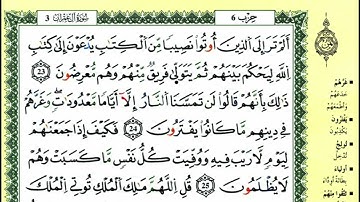 سُورَةُ آلِ عِمْرَانَ 3
حِزْب 6
أَلَمْ تَرَ إِلَى ٱلَّذِينَ أُوتُوا۟ نَصِيبًا مِّنَ ٱلْكِتَـٰبِ يُدْعَوْنَ إِلَىٰ كِتَـٰبِ
ٱللَّهِ لِيَحْكُمَ بَيْنَهُمْ ثُمَّ يَتَوَلَّىٰ فَرِيقٌ مِّنْهُمْ وَهُم مُّعْرِضُونَ 23
ذَٰلِكَ بِأَنَّهُمْ قَالُوا۟ لَن تَمَسَّنَا ٱلنَّارُ إِلَّآ أَيَّامًا مَّعْدُودَٰتٍ ۖ وَغَرَّهُمْ
فِى دِينِهِم مَّا كَانُوا۟ يَفْتَرُونَ 24 فَكَيْفَ إِذَا جَمَعْنَـٰهُمْ
لِيَوْمٍ لَّا رَيْبَ فِيهِ وَوُفِّيَتْ كُلُّ نَفْسٍ مَّا كَسَبَتْ وَهُمْ
لَا يُظْلَمُونَ 25 قُلِ ٱللَّهُمَّ مَـٰلِكَ ٱلْمُلْكِ تُؤْتِى ٱلْمُلْكَ
غَرَّهُمْ
يَفْتَرُونَ
أَوْلِيَاءَ